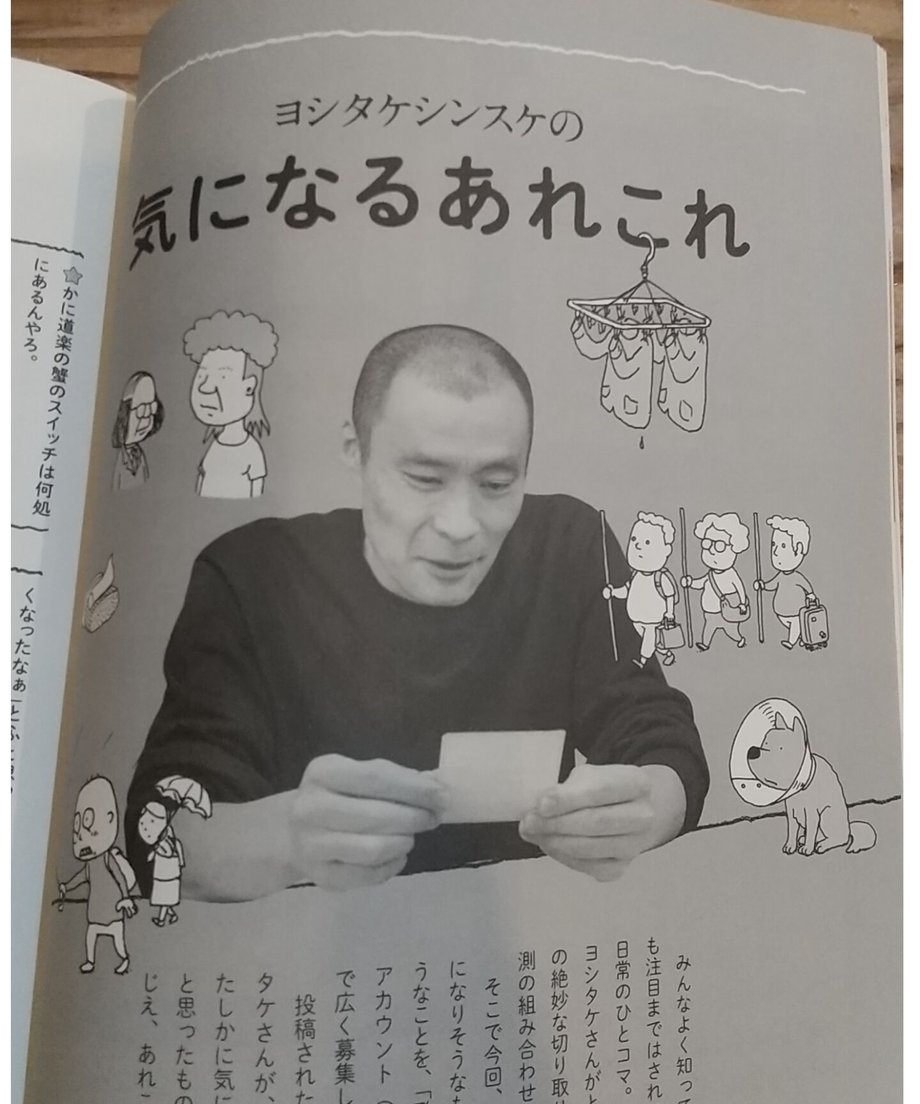 ヨシタケシンスケの
気になるあれこれ
みんなよく知って
も注目まではされ
日常のひとコマ。
ヨシタケさんがと
の絶妙な切り取
測の組み合わせ
そこで今回、
になりそうな
うなことを、「
アカウント（
で広く募集し
投稿された
タケさんが、
たしかに気に
と思ったもの
じえ、あれこ
かに道楽の蟹のスイッチは何処
にあるんやろ。
くなったなぁ